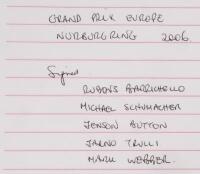 GRAND PRIX EUROPE
NURBURGRING 2006.
Signed
RUBENS BARRICHELLO
MICHAEL SCHUMACHER
JENSON BUTTON
JARNO TRULLI
MARK WEBBER.